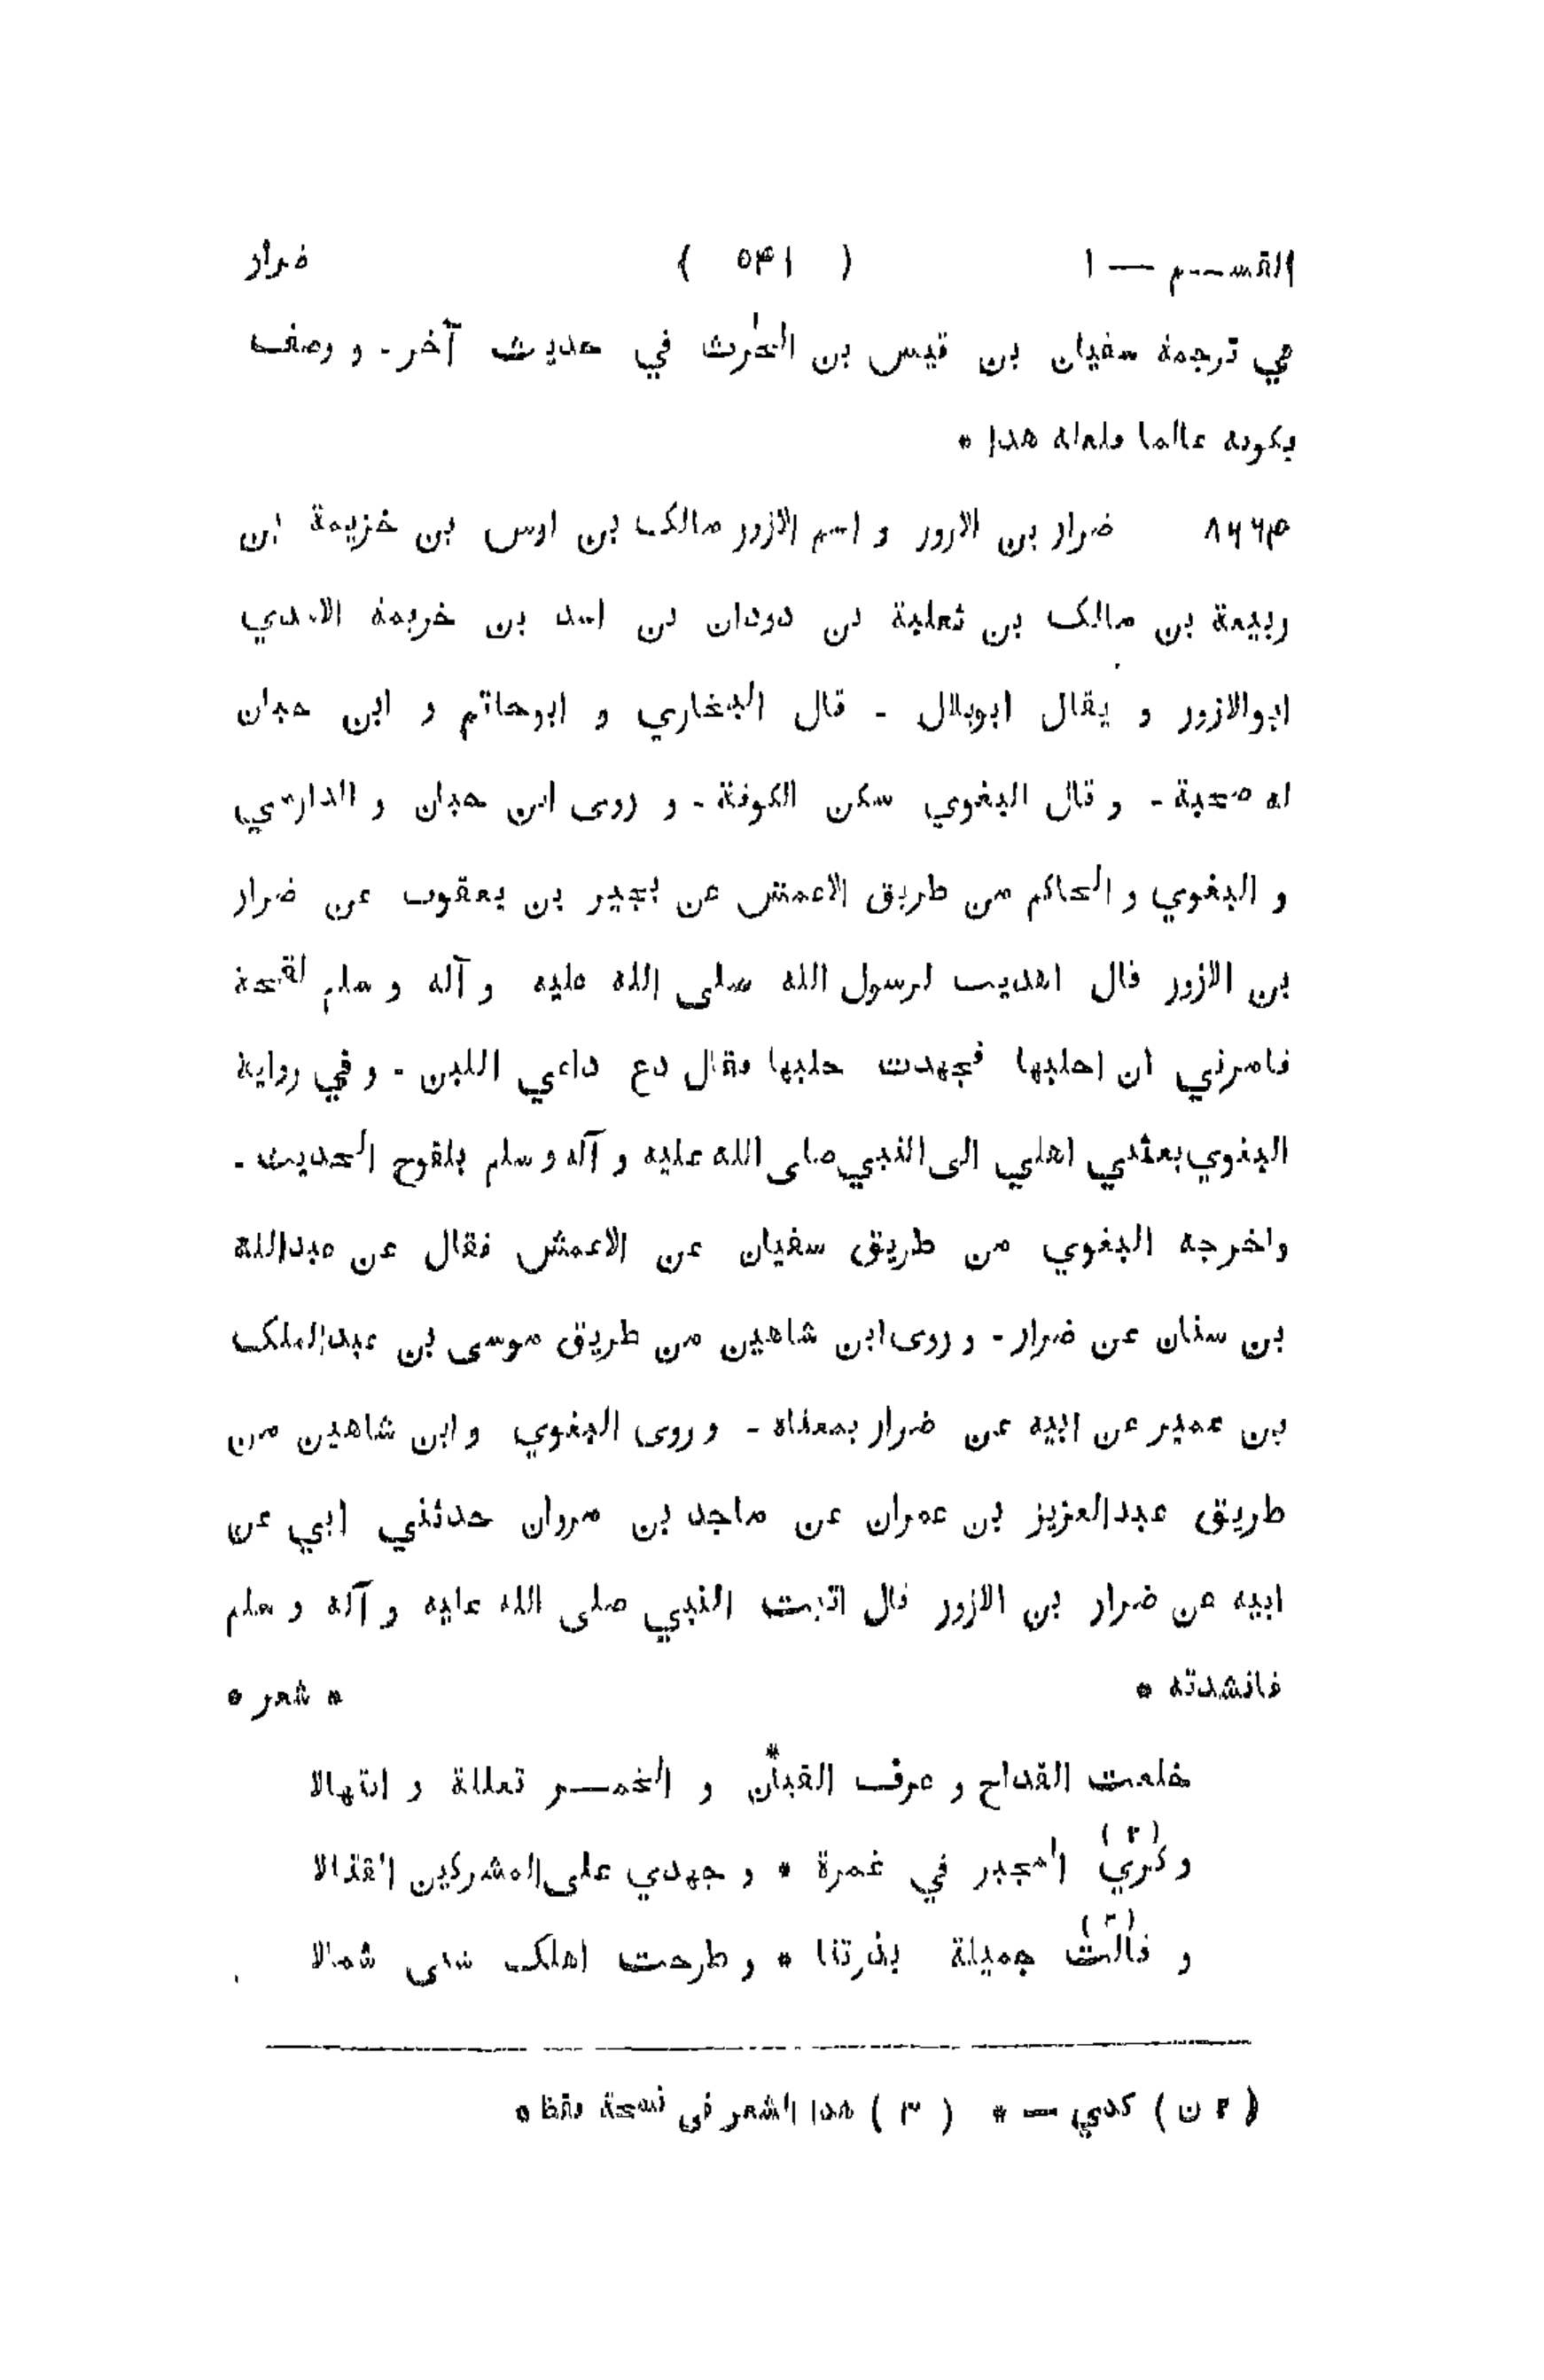 القسم — ١ ( ٥٤١ ) ضرار
في ترجمة سفيان بن قيس بن الحٰرث في حديث آخر - و وصف
بكونه عالما فلعله هذا *
ضرار بن الازور و اسم الازور مالك بن اوس بن خزيمة ابن
ربيعة بن مالك بن ثعلبة بن دودان بن اسد بن خزيمة الاسدي
ابوالازور و يقال ابوبلال - قال البخاري و ابوحاتم و ابن حبان
له صحبة - و قال البغوي سكن الكوفة - و روى ابن حبان و الدارمي
و البغوي و الحاكم من طريق الاعمش عن بجير بن يعقوب عن ضرار
بن الازور قال اهديت لرسول الله صلى الله عليه و آله و سلم لقحة
فامرني ان احلبها فجهدت حلبها فقال دع داعي اللبن - و في رواية
البغوي بعثني اهلي الى النبي صلى الله عليه و آله و سلم بلقوح الحديث -
واخرجه البغوي من طريق سفيان عن الاعمش فقال عن عبدالله
بن سنان عن ضرار - و روى ابن شاهين من طريق موسى بن عبدالملك
بن عمير عن ابيه عن ضرار بمعناه - و روى البغوي و ابن شاهين من
طريق عبدالعزيز بن عمران عن ماجد بن مروان حدثني ابي عن
ابيه عن ضرار بن الازور قال اتيت النبي صلى الله عليه و آله و سلم
فانشدته * * شعر *
خلعت القداح و عزف القيان * و الخمر تعللة و انتهالا
و كري (٢) المجبر في غمرة * و جهدي على المشركين القتالا
و قالت (٣) جميلة بذرتنا * و طرحت اهلك شتى شمالا
( ٢ ن ) كدي — * ( ٣ ) هذا الشعر فى نسخة فقط *